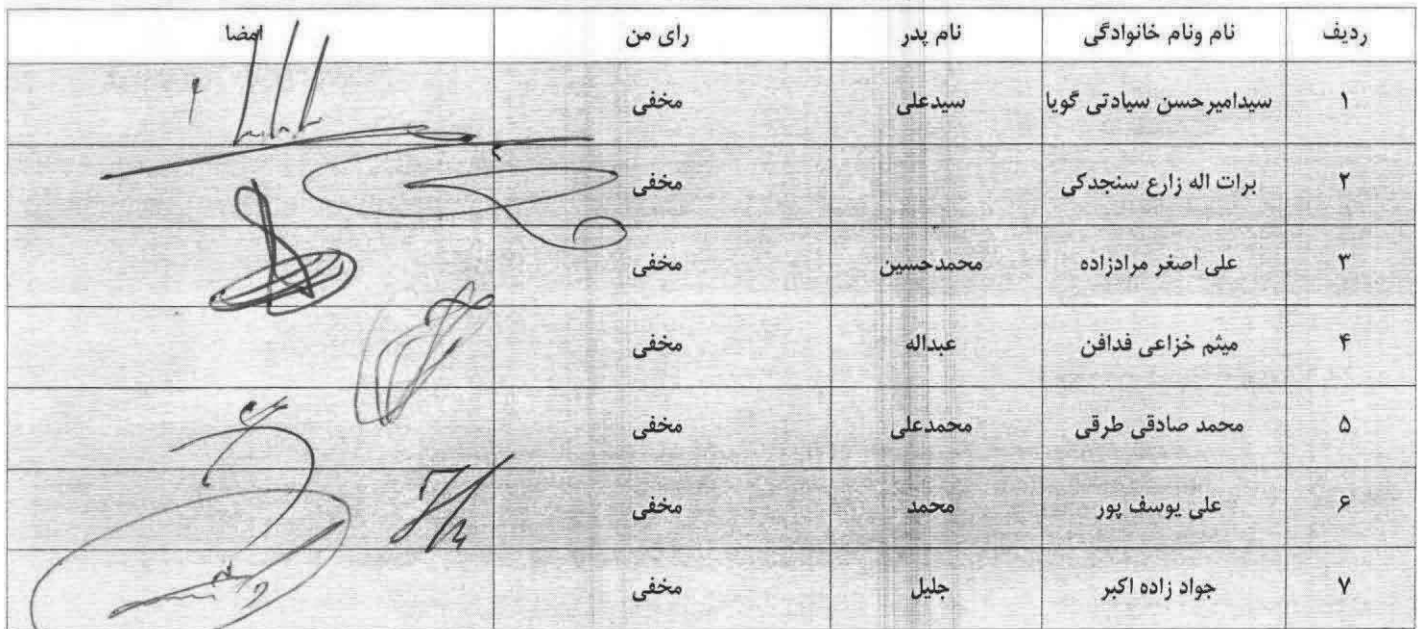 ردیف نام ونام خانوادگی نام پدر رای من امضا
۱ سیدامیرحسن سیادتی گویا سیدعلی مخفی
۲ برات اله زارع سنجدکی مخفی
۳ علی اصغر مرادزاده محمدحسین مخفی
۴ میثم خزاعی فدافن عبداله مخفی
۵ محمد صادقی طرقی محمدعلی مخفی
۶ علی یوسف پور محمد مخفی
۷ جواد زاده اکبر جلیل مخفی